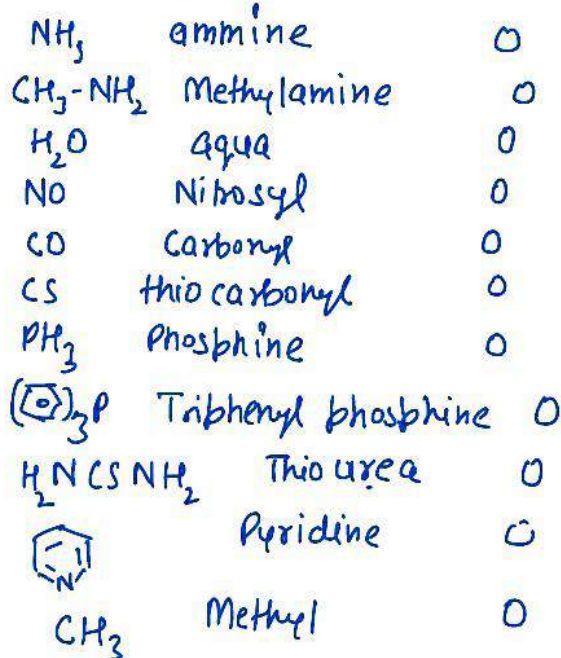 NH3 ammine 0
CH3-NH2 Methylamine 0
H2O aqua 0
NO Nitrosyl 0
CO Carbonyl 0
CS thio carbonyl 0
PH3 Phosphine 0
( )3P Triphenyl phosphine 0
H2NCSNH2 Thiourea 0
N Pyridine 0
CH3 Methyl 0